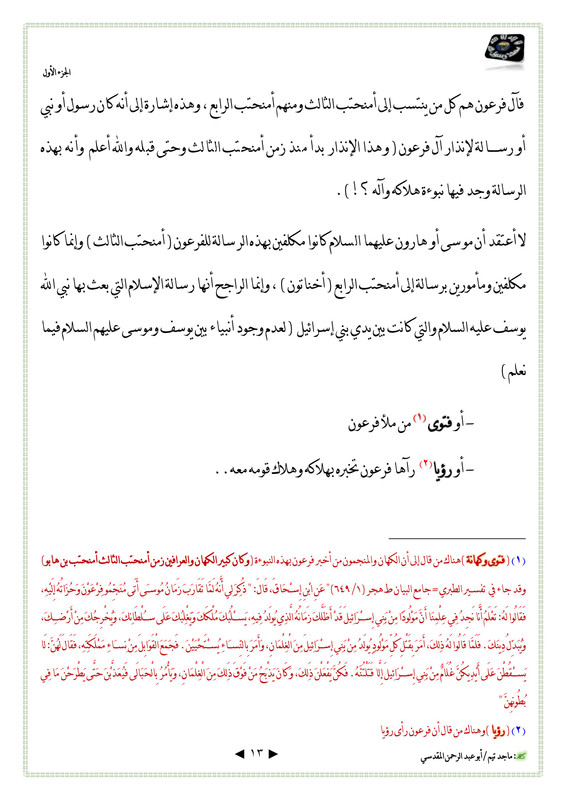 الجزء الأول
فآل فرعون هم كل من ينتسب إلى أمنحتب الثالث ومنهم أمنحتب الرابع ، وهذه إشارة إلى أنه كان رسول أو نبي
أو رســالة لإنذار آل فرعون ( وهذا الإنذار بدأ منذ زمن أمنحتب الثالث وحتى قبله والله أعلم وأنه بهذه
الرسالة وجد فيها نبوءة هلاكه وآله ؟ ! ) .
لا أعتقد أن موسى أو هارون عليهما السلام كانوا مكلفين بهذه الرسالة للفرعون ( أمنحتب الثالث ) وإنما كانوا
مكلفين ومأمورين برسالة إلى أمنحتب الرابع ( أخناتون ) ، وإنما الراجح أنها رسالة الإسلام التي بعث بها نبي الله
يوسف عليه السلام والتي كانت بين يدي بني إسرائيل ( لعدم وجود أنبياء بين يوسف وموسى عليهم السلام فيما
نعلم )
– أو فتوى (١) من ملأ فرعون
– أو رؤيا (٢) رآها فرعون تخبره بهلاكه وهلاك قومه معه . .
(١) ( فتوى وكهانة ) هناك من قال إلى أن الكهان والمنجمون من أخبر فرعون بهذه النبوءة (وكان كبير الكهان والعرافين زمن أمنحتب الثالث أمنحتب بن هابو)
وقد جاء في تفسير الطبري = جامع البيان ط هجر (١/ ٦٤٩) " عَنِ ابْنِ إِسْحَاقَ، قَالَ: " ذُكِرَ لِي أَنَّهُ لَمَّا تَقَارَبَ زَمَانُ مُوسَى أَتَى مُنَجِّمُو فِرْعَوْنَ وَحُزَاتُهُ إِلَيْهِ،
فَقَالُوا لَهُ: تَعْلَمُ أَنَّا نَجِدُ فِي عِلْمِنَا أَنَّ مَوْلُودًا مِنْ بَنِي إِسْرَائِيلَ قَدْ أَظَلَّكَ زَمَانُهُ الَّذِي يُولَدُ فِيهِ، يَسْلُبُكَ مُلْكَكَ وَيَغْلِبُكَ عَلَى سُلْطَانِكَ، وَيُخْرِجُكَ مِنْ أَرْضِكَ،
وَيُبَدِّلُ دِينَكَ . فَلَمَّا قَالُوا لَهُ ذَلِكَ، أَمَرَ بِقَتْلِ كُلِّ مَوْلُودٍ يُولَدُ مِنْ بَنِي إِسْرَائِيلَ مِنَ الْغِلْمَانِ، وَأَمَرَ بِالنِّسَاءِ يُسْتَحْيَيْنَ . فَجَمَعَ الْقَوَابِلَ مِنْ نِسَاءِ مَمْلَكَتِهِ، فَقَالَ لَهُنَّ: لَا
يَسْقُطْنَ عَلَى أَيْدِيكُنَّ غُلَامٌ مِنْ بَنِي إِسْرَائِيلَ إِلَّا قَتَلْتُنَّهُ . فَكُنَّ يَفْعَلْنَ ذَلِكَ، وَكَانَ يَذْبَحُ مَنْ فَوْقَ ذَلِكَ مِنَ الْغِلْمَانِ، وَيَأْمُرُ بِالْحَبَالَى فَيُعَذَّبْنَ حَتَّى يَطْرَحْنَ مَا فِي
بُطُونِهِنَّ "
(٢) ( رؤيا ) وهناك من قال أن فرعون رأى رؤيا
◄ ١٣ ►
: ماجد تيم / أبو عبد الرحمن المقدسي